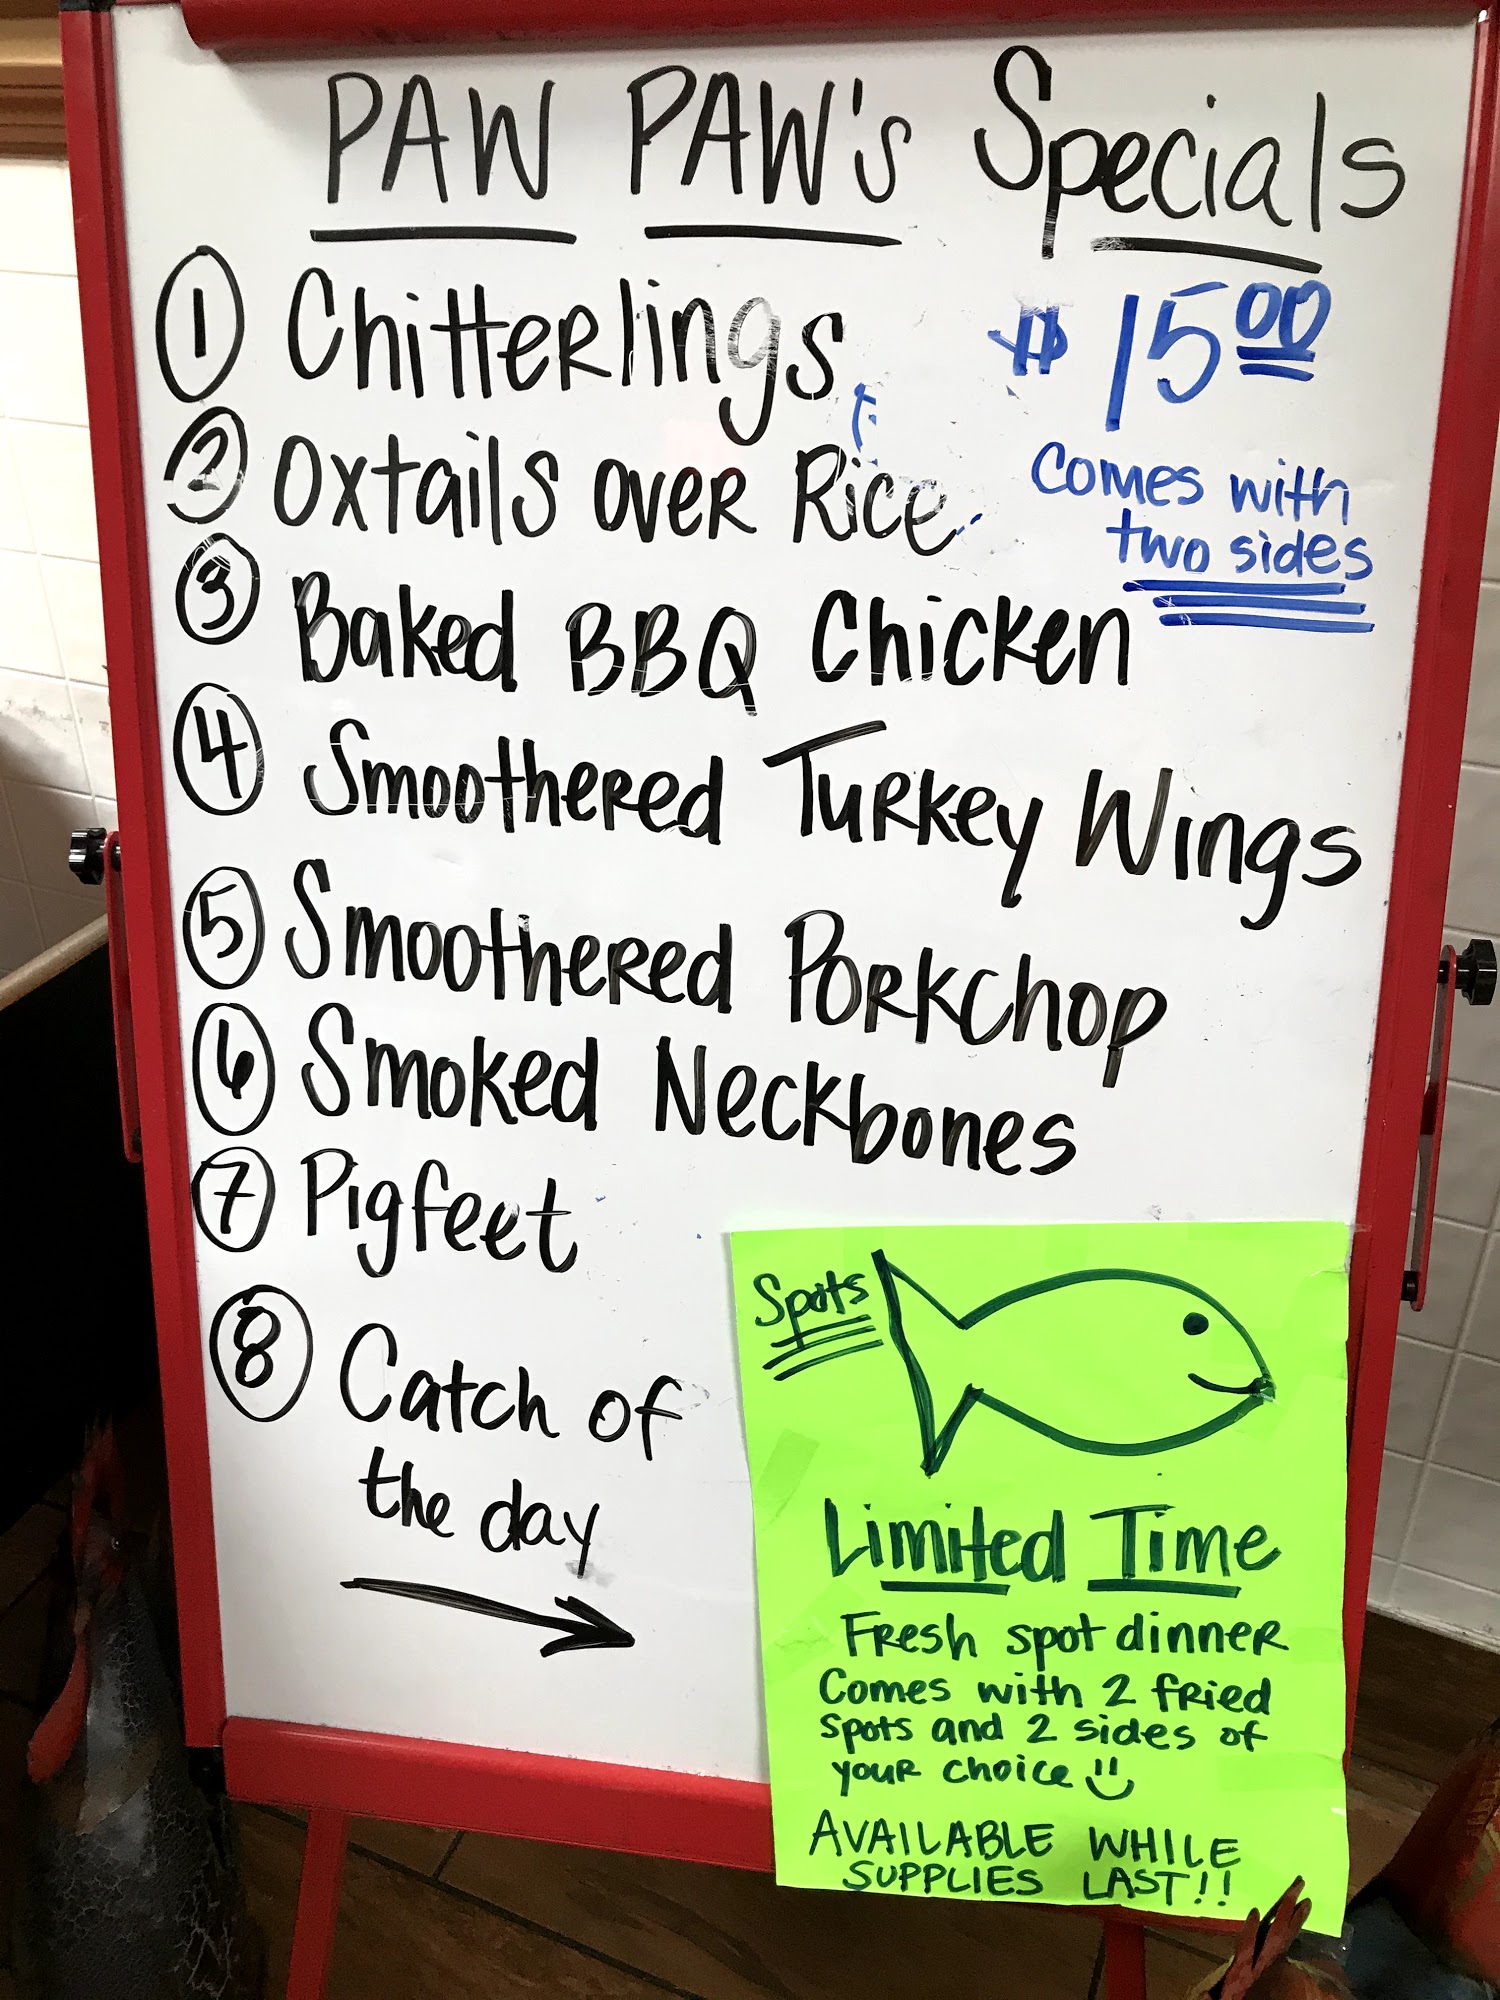 PAW PAW's Specials
1 Chitterlings $15.00
comes with
two sides
2 Oxtails over Rice
3 Baked BBQ Chicken
4 Smoothered Turkey Wings
5 Smoothered Porkchop
6 Smoked Neckbones
7 Pigfeet
8 Catch of
the day
Spots
Limited Time
Fresh spot dinner
Comes with 2 fried
spots and 2 sides of
your choice
AVAILABLE WHILE
SUPPLIES LAST!!